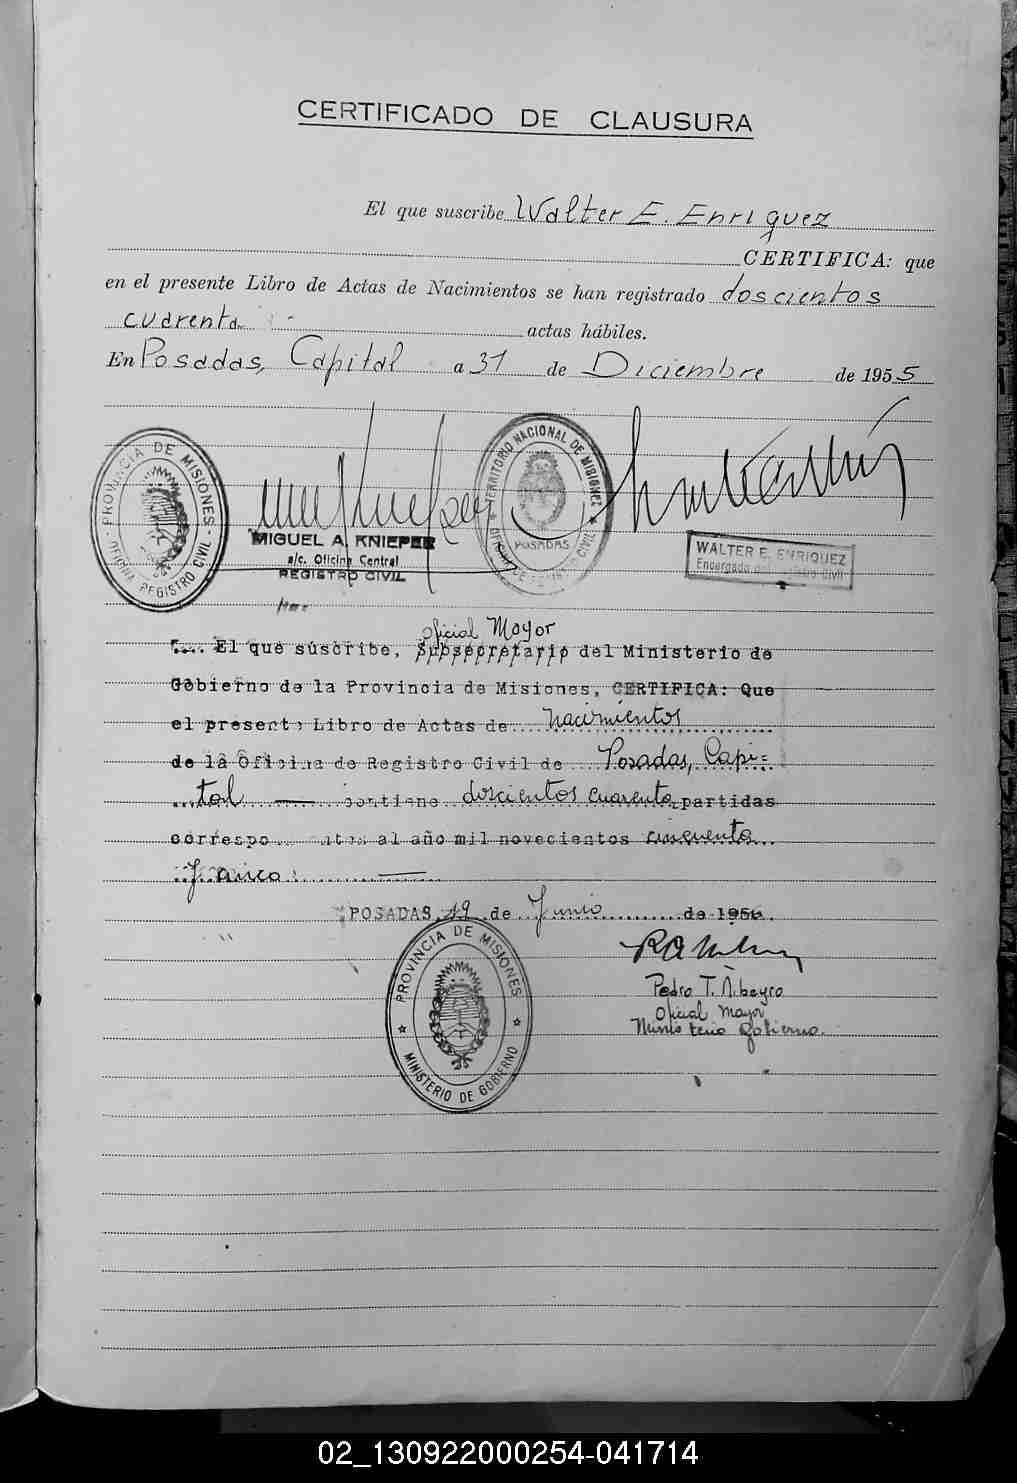 CERTIFICADO DE CLAUSURA
El que suscribe Walter E. Enriquez
CERTIFICA: que
en el presente Libro de Actas de Nacimientos se han registrado doscientos
cuarenta actas hábiles.
En Posadas, Capital a 31 de Diciembre de 1955
PROVINCIA DE MISIONES
OFICINA REGISTRO CIVIL
TERRITORIO NACIONAL DE MISIONES
POSADAS
MIGUEL A. KNIEPER
a/c. Oficina Central
REGISTRO CIVIL
WALTER E. ENRIQUEZ
Encargado del Registro Civil
oficial Mayor
El que súscribe, Subsecretario del Ministerio de
Gobierno de la Provincia de Misiones, CERTIFICA: Que
el presente Libro de Actas de nacimientos
de la Oficina de Registro Civil de Posadas, Capi-
tal contiene doscientos cuarenta partidas
al año mil novecientos cincuenta
y cinco
POSADAS, 19 de Junio de 1956.
PROVINCIA DE MISIONES
MINISTERIO DE GOBIERNO
Pedro T. Ribeyro
Oficial Mayor
Ministerio Gobierno.
02_130922000254-041714